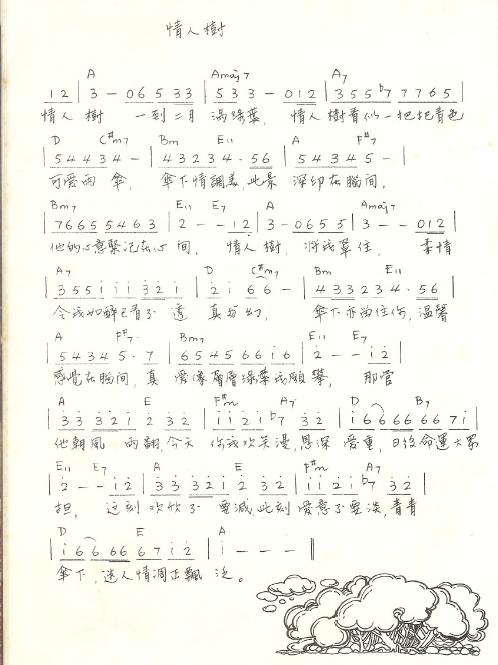 情人樹
A Amaj7 A7
12 | 3 - 06533 | 533 - 012 | 355♭77765 |
情人 樹 一到二月 滿綠葉, 情人樹看似一把把青色
D C#m7 Bm E11 A F#7
| 54434 - | 43234·56 | 54345 - |
可愛雨 傘, 傘下情調美,此景 深印在腦間,
Bm7 E11 E7 A Amaj7
| 76655463 | 2 - - 12 | 3 - 0655 | 3 - - 012 |
他的心意緊記在心 間, 情人 樹, 將我罩住, 柔情
A7 D C#m7 Bm E11
| 355iii32i | 2i66 - | 433234·56 |
令我如醉已看不 透 真 幻, 傘下亦由住你,溫馨
A F#7 Bm7 E11 E7
| 54345·7 | 654566i6 | 2 - - i2 |
感覺在腦間,真 愛像層層綠葉我願攀, 那管
A E F#m A7 D B7
| 3332i232 | ii2i732 | i666667i |
他朝風 雨翻,今天 你我歡笑漫,恩深 愛重,日後命運大家
E11 E7 A E F#m A7
| 2 - - i2 | 3332i232 | ii2i732 |
担, 這刻 歡欣不 要減,此刻 愛意不要淡,青青
D E A
| i66667i2 | i - - - ‖
傘下,迷人情調正飄 泛。